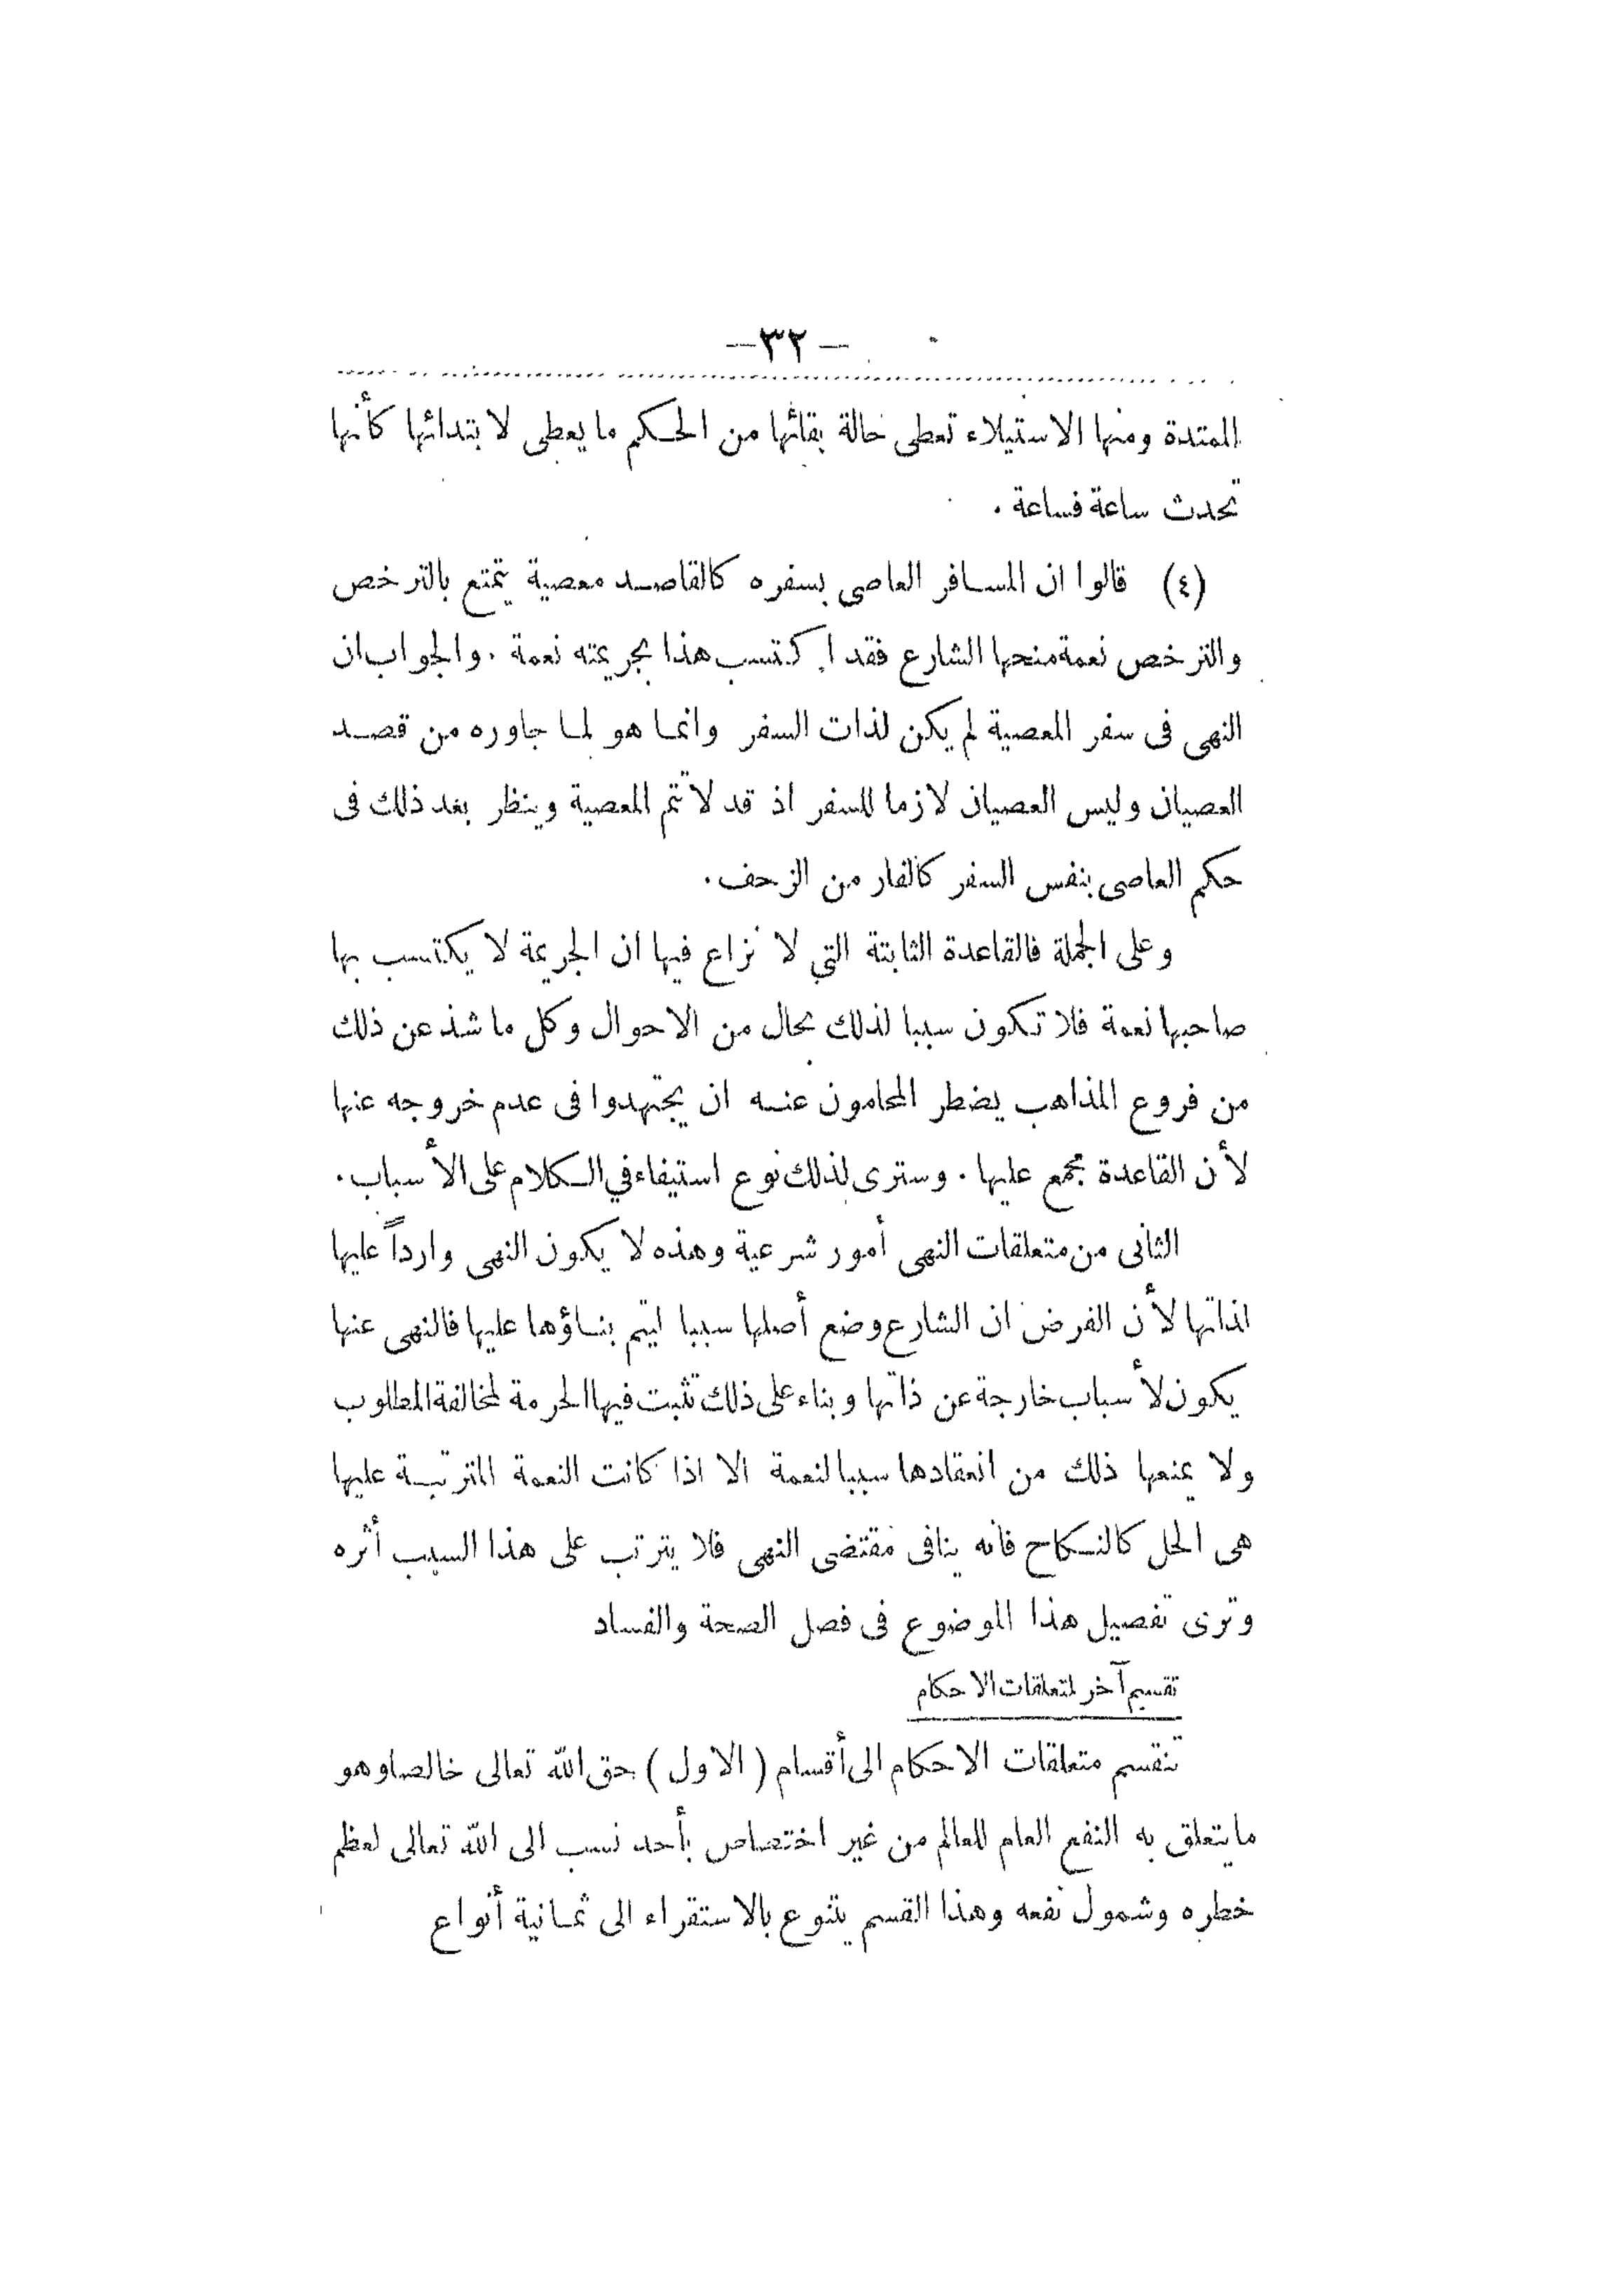 — ٣٢ —
الممتدة ومنها الاستيلاء تعطى حالة بقائها من الحكم ما يعطى لابتدائها كأنها
تحدث ساعة فساعة .
(٤) قالوا ان المسافر العاصى بسفره كالقاصد معصية يتمتع بالترخص
والترخص نعمة منحها الشارع فقد اكتسب هذا بجريمته نعمة . والجواب ان
النهى فى سفر المعصية لم يكن لذات السفر وانما هو لما جاوره من قصد
العصيان وليس العصيان لازما للسفر اذ قد لا تتم المعصية وينظر بعد ذلك فى
حكم العاصى بنفس السفر كالفار من الزحف .
وعلى الجملة فالقاعدة الثابتة التي لا نزاع فيها ان الجريمة لا يكتسب بها
صاحبها نعمة فلا تكون سببا لذلك بحال من الاحوال وكل ما شذ عن ذلك
من فروع المذاهب يضطر المحامون عنه ان يجتهدوا فى عدم خروجه عنها
لأن القاعدة مجمع عليها . وسترى لذلك نوع استيفاء في الكلام على الأسباب .
الثانى من متعلقات النهى أمور شرعية وهذه لا يكون النهى وارداً عليها
لذاتها لأن الفرض ان الشارع وضع أصلها سببا ليتم بناؤها عليها فالنهى عنها
يكون لأسباب خارجة عن ذاتها وبناء على ذلك تثبت فيها الحرمة لمخالفة المطلوب
ولا يمنعها ذلك من انعقادها سببا لنعمة الا اذا كانت النعمة المترتبة عليها
هى الحل كالنكاح فانه ينافى مقتضى النهى فلا يترتب على هذا السبب أثره
وترى تفصيل هذا الموضوع فى فصل الصحة والفساد
تقسيم آخر لمتعلقات الاحكام
تنقسم متعلقات الاحكام الى أقسام ( الاول ) حق الله تعالى خالصا وهو
ما يتعلق به النفع العام للعالم من غير اختصاص بأحد نسب الى الله تعالى لعظم
خطره وشمول نفعه وهذا القسم يتنوع بالاستقراء الى ثمانية أنواع